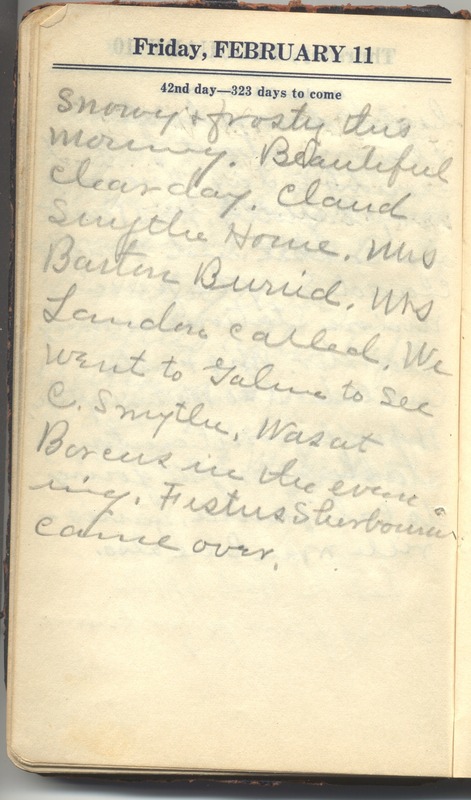 Friday, FEBRUARY 11
42nd day—323 days to come
Snowy & frosty this
morning. Beautiful
clear day. Claud
Smythe Home. Mrs
Barton Buried. Mrs
Landon called. We
went to to see
C. Smythe. Was at
in the even
ing. Festus
came over.